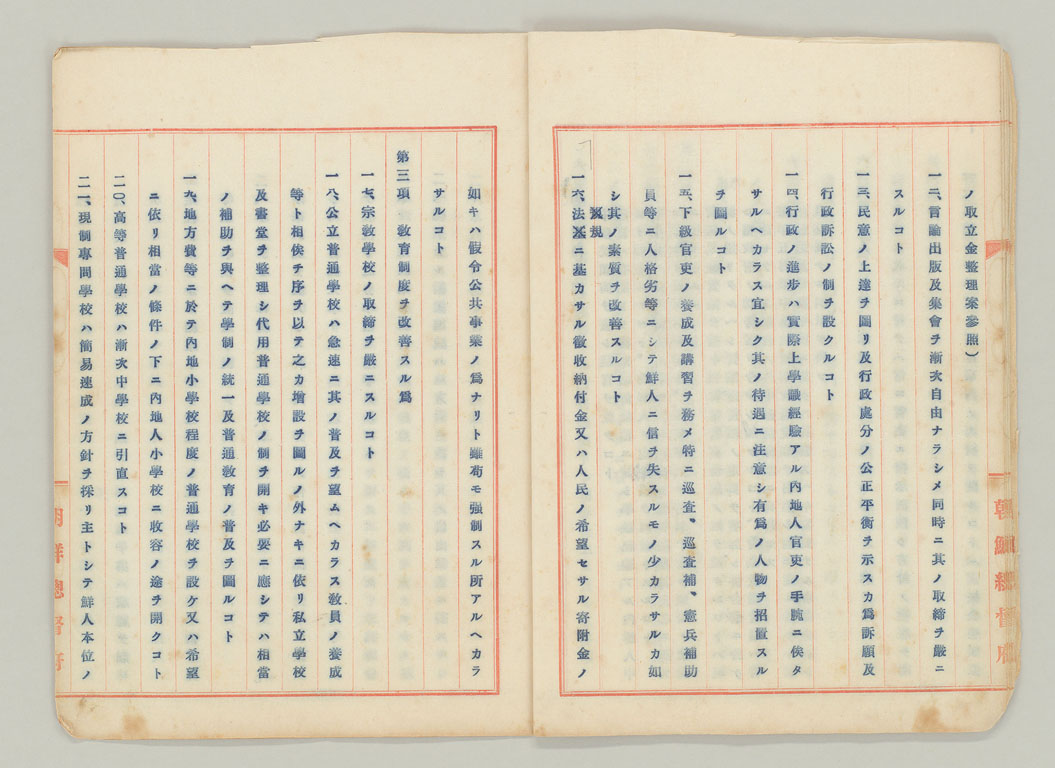 ノ取立金整理案參照）
一二、言論出版及集會ヲ漸次自由ナラシメ同時ニ其ノ取締ヲ嚴ニ
スルコト
一三、民意ノ上達ヲ圖リ及行政處分ノ公正平衡ヲ示スカ爲訴願及
行政訴訟ノ制ヲ設クルコト
一四、行政ノ進步ハ實際上學識經驗アル內地人官吏ノ手腕ニ俟タ
サルヘカラス宜シク其ノ待遇ニ注意シ有爲ノ人物ヲ招置スル
ヲ圖ルコト
一五、下級官吏ノ養成及講習ヲ務メ特ニ巡査、巡査補、憲兵補助
員等ニ人格劣等ニシテ鮮人ニ信ヲ失スルモノ少カラサルカ如
シ其ノ素質ヲ改善スルコト
一六、法規ニ基カサル徵收納付金又ハ人民ノ希望セサル寄附金ノ
如キハ假令公共事業ノ爲ナリト雖苟モ强制スル所アルヘカラ
サルコト
第三項　敎育制度ヲ改善スル爲
一七、宗敎學校ノ取締ヲ嚴ニスルコト
一八、公立普通學校ハ急速ニ其ノ普及ヲ望ムヘカラス敎員ノ養成
等ト相俟チ序ヲ以テ之カ增設ヲ圖ルノ外ナキニ依リ私立學校
及書堂ヲ整理シ代用普通學校ノ制ヲ開キ必要ニ應シテハ相當
ノ補助ヲ與ヘテ學制ノ統一及普通敎育ノ普及ヲ圖ルコト
一九、地方費等ニ於テ內地小學校程度ノ普通學校ヲ設ケ又ハ希望
ニ依リ相當ノ條件ノ下ニ內地人小學校ニ收容ノ途ヲ開クコト
二〇、高等普通學校ハ漸次中學校ニ引直スコト
二一、現制專門學校ハ簡易速成ノ方針ヲ採リ主トシテ鮮人本位ノ
朝鮮總督府
朝鮮總督府